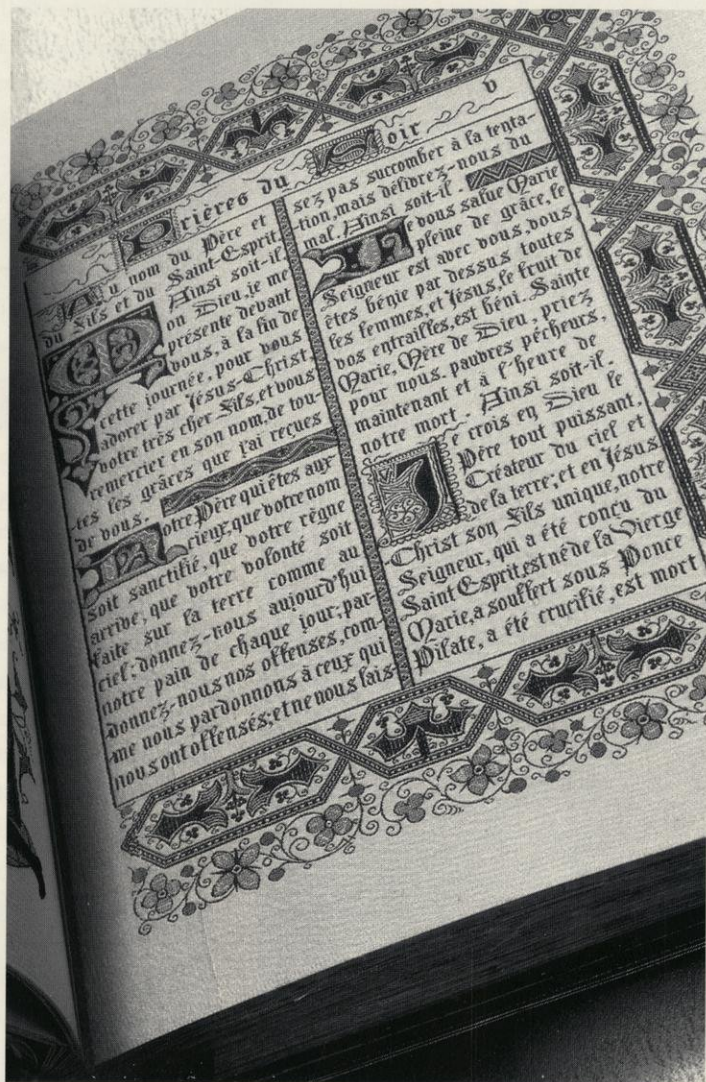 Prières du Soir
v
Au nom du Père et
du Fils et du Saint-Esprit.
Ainsi soit-il.
Mon Dieu, je me
présente devant
vous, à la fin de
cette journée, pour vous
adorer par Jésus-Christ,
votre très cher Fils, et vous
remercier en son nom, de tou-
tes les grâces que j'ai reçues
de vous.
Notre Père qui êtes aux
cieux, que votre nom
soit sanctifié, que votre règne
arrive, que votre volonté soit
faite sur la terre comme au
ciel; donnez-nous aujourd'hui
notre pain de chaque jour; par-
donnez-nous nos offenses, com-
me nous pardonnons à ceux qui
nous ont offensés; et ne nous lais-
sez pas succomber à la tenta-
tion, mais délivrez-nous du
mal. Ainsi soit-il.
Je vous salue Marie
pleine de grâce, le
Seigneur est avec vous, vous
êtes bénie par dessus toutes
les femmes, et Jésus, le fruit de
vos entrailles, est béni. Sainte
Marie, Mère de Dieu, priez
pour nous pauvres pécheurs,
maintenant et à l'heure de
notre mort. Ainsi soit-il.
Je crois en Dieu le
Père tout puissant,
Créateur du ciel et
de la terre; et en Jésus
Christ son Fils unique, notre
Seigneur, qui a été conçu du
Saint Esprit, est né de la Vierge
Marie, a souffert sous Ponce
Pilate, a été crucifié, est mort